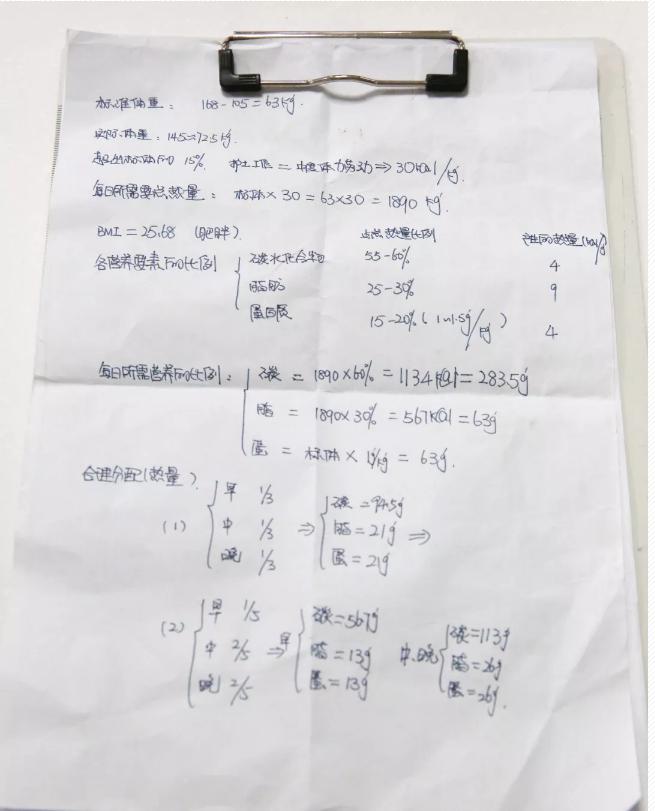 标准体重： 168-105=63kg.
实际体重：145=72.5kg.
超出标体的 15%. 护士工作 = 中度体力劳动⇒30kcal/kg.
每日所需要总热量： 标体×30=63×30=1890 kg.
BMI=25.68 (肥胖). 占总热量比例 产生的热量(kcal/g)
各营养要素的比例 碳水化合物 55-60% 4
脂肪 25-30% 9
蛋白质 15-20% (1~1.5g/kg) 4
每日所需营养的比例： 碳 = 1890×60% = 1134kcal = 283.5g
脂 = 1890×30% = 567kcal = 63g
蛋 = 标体×1g/kg = 63g.
合理分配(热量).
(1) 早 1/3 碳=94.5g
中 1/3 ⇒ 脂=21g ⇒
晚 1/3 蛋=21g
(2) 早 1/5 碳=567g 碳=113g
中 2/5 ⇒ 早 脂=13g 中.晚 脂=26g
晚 2/5 蛋=13g 蛋=26g.